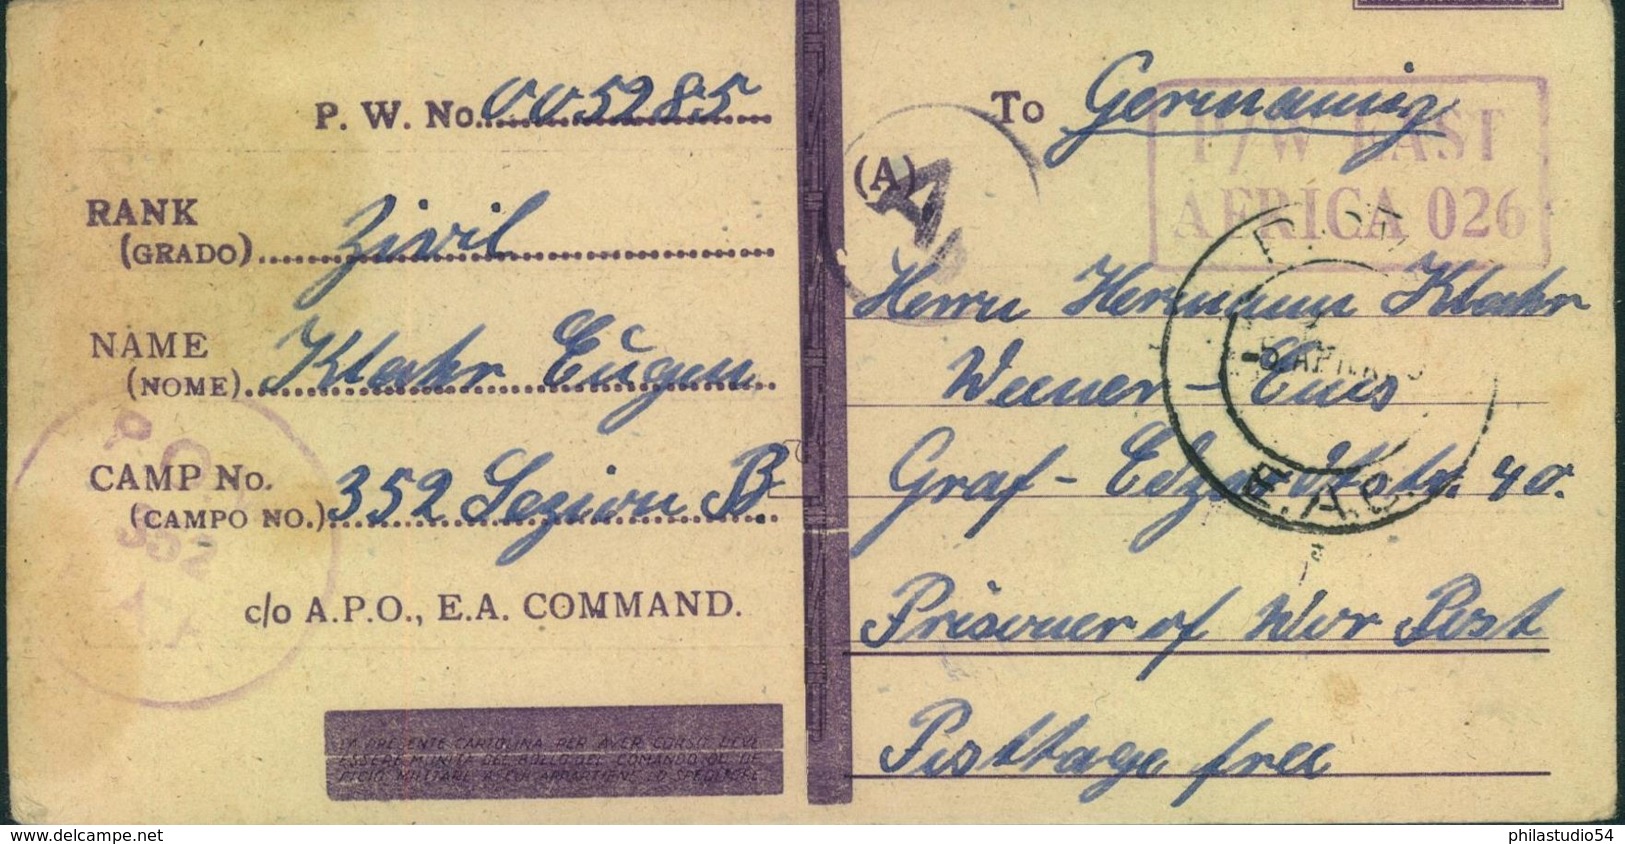 P. W. No. 005285
RANK
(GRADO) Zivil
NAME
(NOME) Klahr Eugen
CAMP No.
(CAMPO NO.) 352 Sezion B.
c/o A.P.O., E.A. COMMAND.
LA PRESENTE CARTOLINA PER AVER CORSO DEVE
ESSERE MUNITA DEL BOLLO DEL COMANDO OD UF
FICIO MILITARE A CUI APPARTIENE LO SPEDITORE
P.O.
352
To Germaniy
(A)
A
P/W EAST
AFRICA 026
Herrn Hermann Klahr
Weener - Ems
Graf - Edzardstr. 40.
Prisoner of War Post
Posttage free
5 APR
E.A.C.
www.delcampe.net
philastudio54